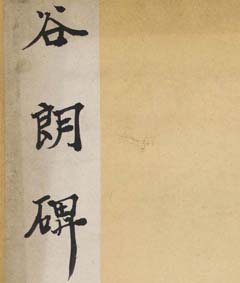 谷朗碑